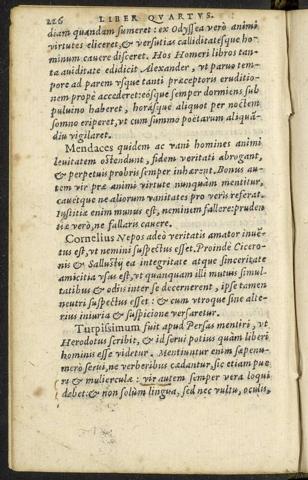 226 LIBER QVARTVS.
diam quandam sumeret: ex Odyssea verò animi
virtutes eliceret, & versutias calliditatesque ho-
minum cauere disceret. Hos Homeri libros tan-
ta auiditate edidicit Alexander, vt paruo tem-
pore ad parem ysque tanti præceptoris eruditio-
nem propè accederet: eósque semper dormiens sub
puluino haberet, horásque aliquot per noctem
somno eriperet, vt cum summo poëtarum aliquã-
diu vigilaret.
Mendaces quidem ac vani homines animi
leuitatem ostendunt, fidem veritati abrogant,
& perpetuis probris semper inhærent. Bonus au-
tem vir præ animi virtute nunquàm mentitur,
cauétque ne aliorum vanitates pro veris referat.
Iustitiæ enim munus est, neminem fallere: pruden
tiæ verò, ne fallaris cauere.
Cornelius Nepos adeò veritatis amator inuẽ-
tus est, vt nemini suspectus esset. Proindè Cicero-
nis & Sallustij ea integritate atque sinceritate
amicitia vsus est, vt quanquam illi mutuis simul-
tatibus & odiis inter se decernerent, ipse tamen
neutri suspectus esset: & cum vtroque sine alte-
rius iniuria & suspicione versaretur.
Turpissimum fuit apud Persas mentiri, vt
Herodotus scribit, & id serui potius quàm liberi
hominis esse videtur. Mentiuntur enim sæpenu-
merò serui, ne verberibus cædantur, sic etiam pue
ri & mulierculæ: vir autem semper vera loqui
debet & non solùm lingua, sed nec vultu, oculis,